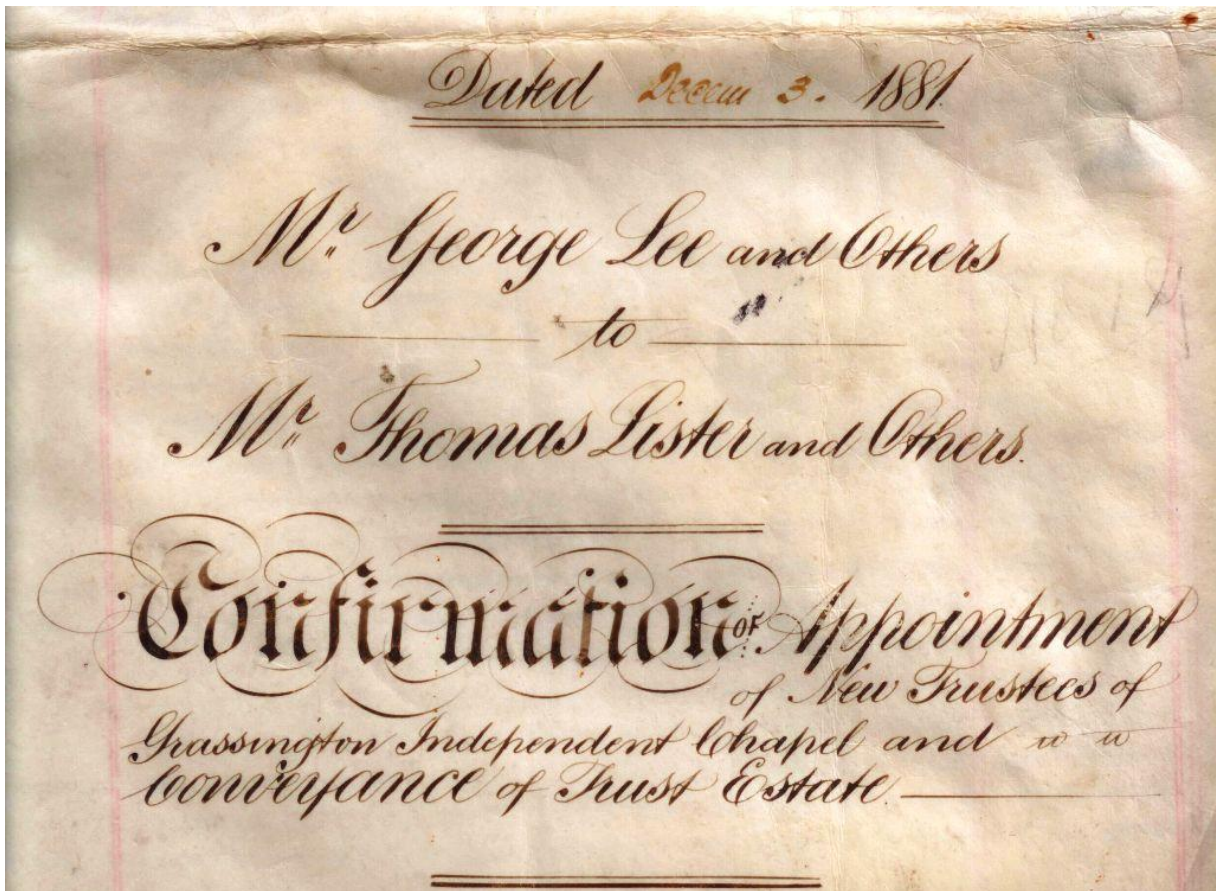 Dated Decem 3. 1881.
Mr. George Lee and Others
to
Mr. Thomas Lister and Others.
Confirmation OF Appointment
of New Trustees of
Grassington Independent Chapel and
Conveyance of Trust Estate.